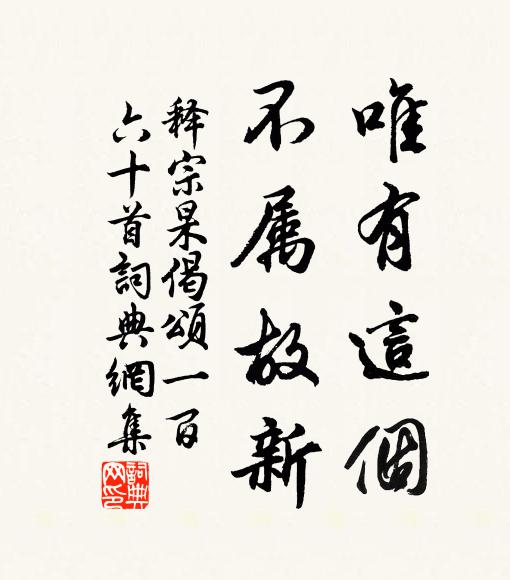 唯有這個
不属故新
释宗杲偈頌一百
六十首詞典網集
詞典網印